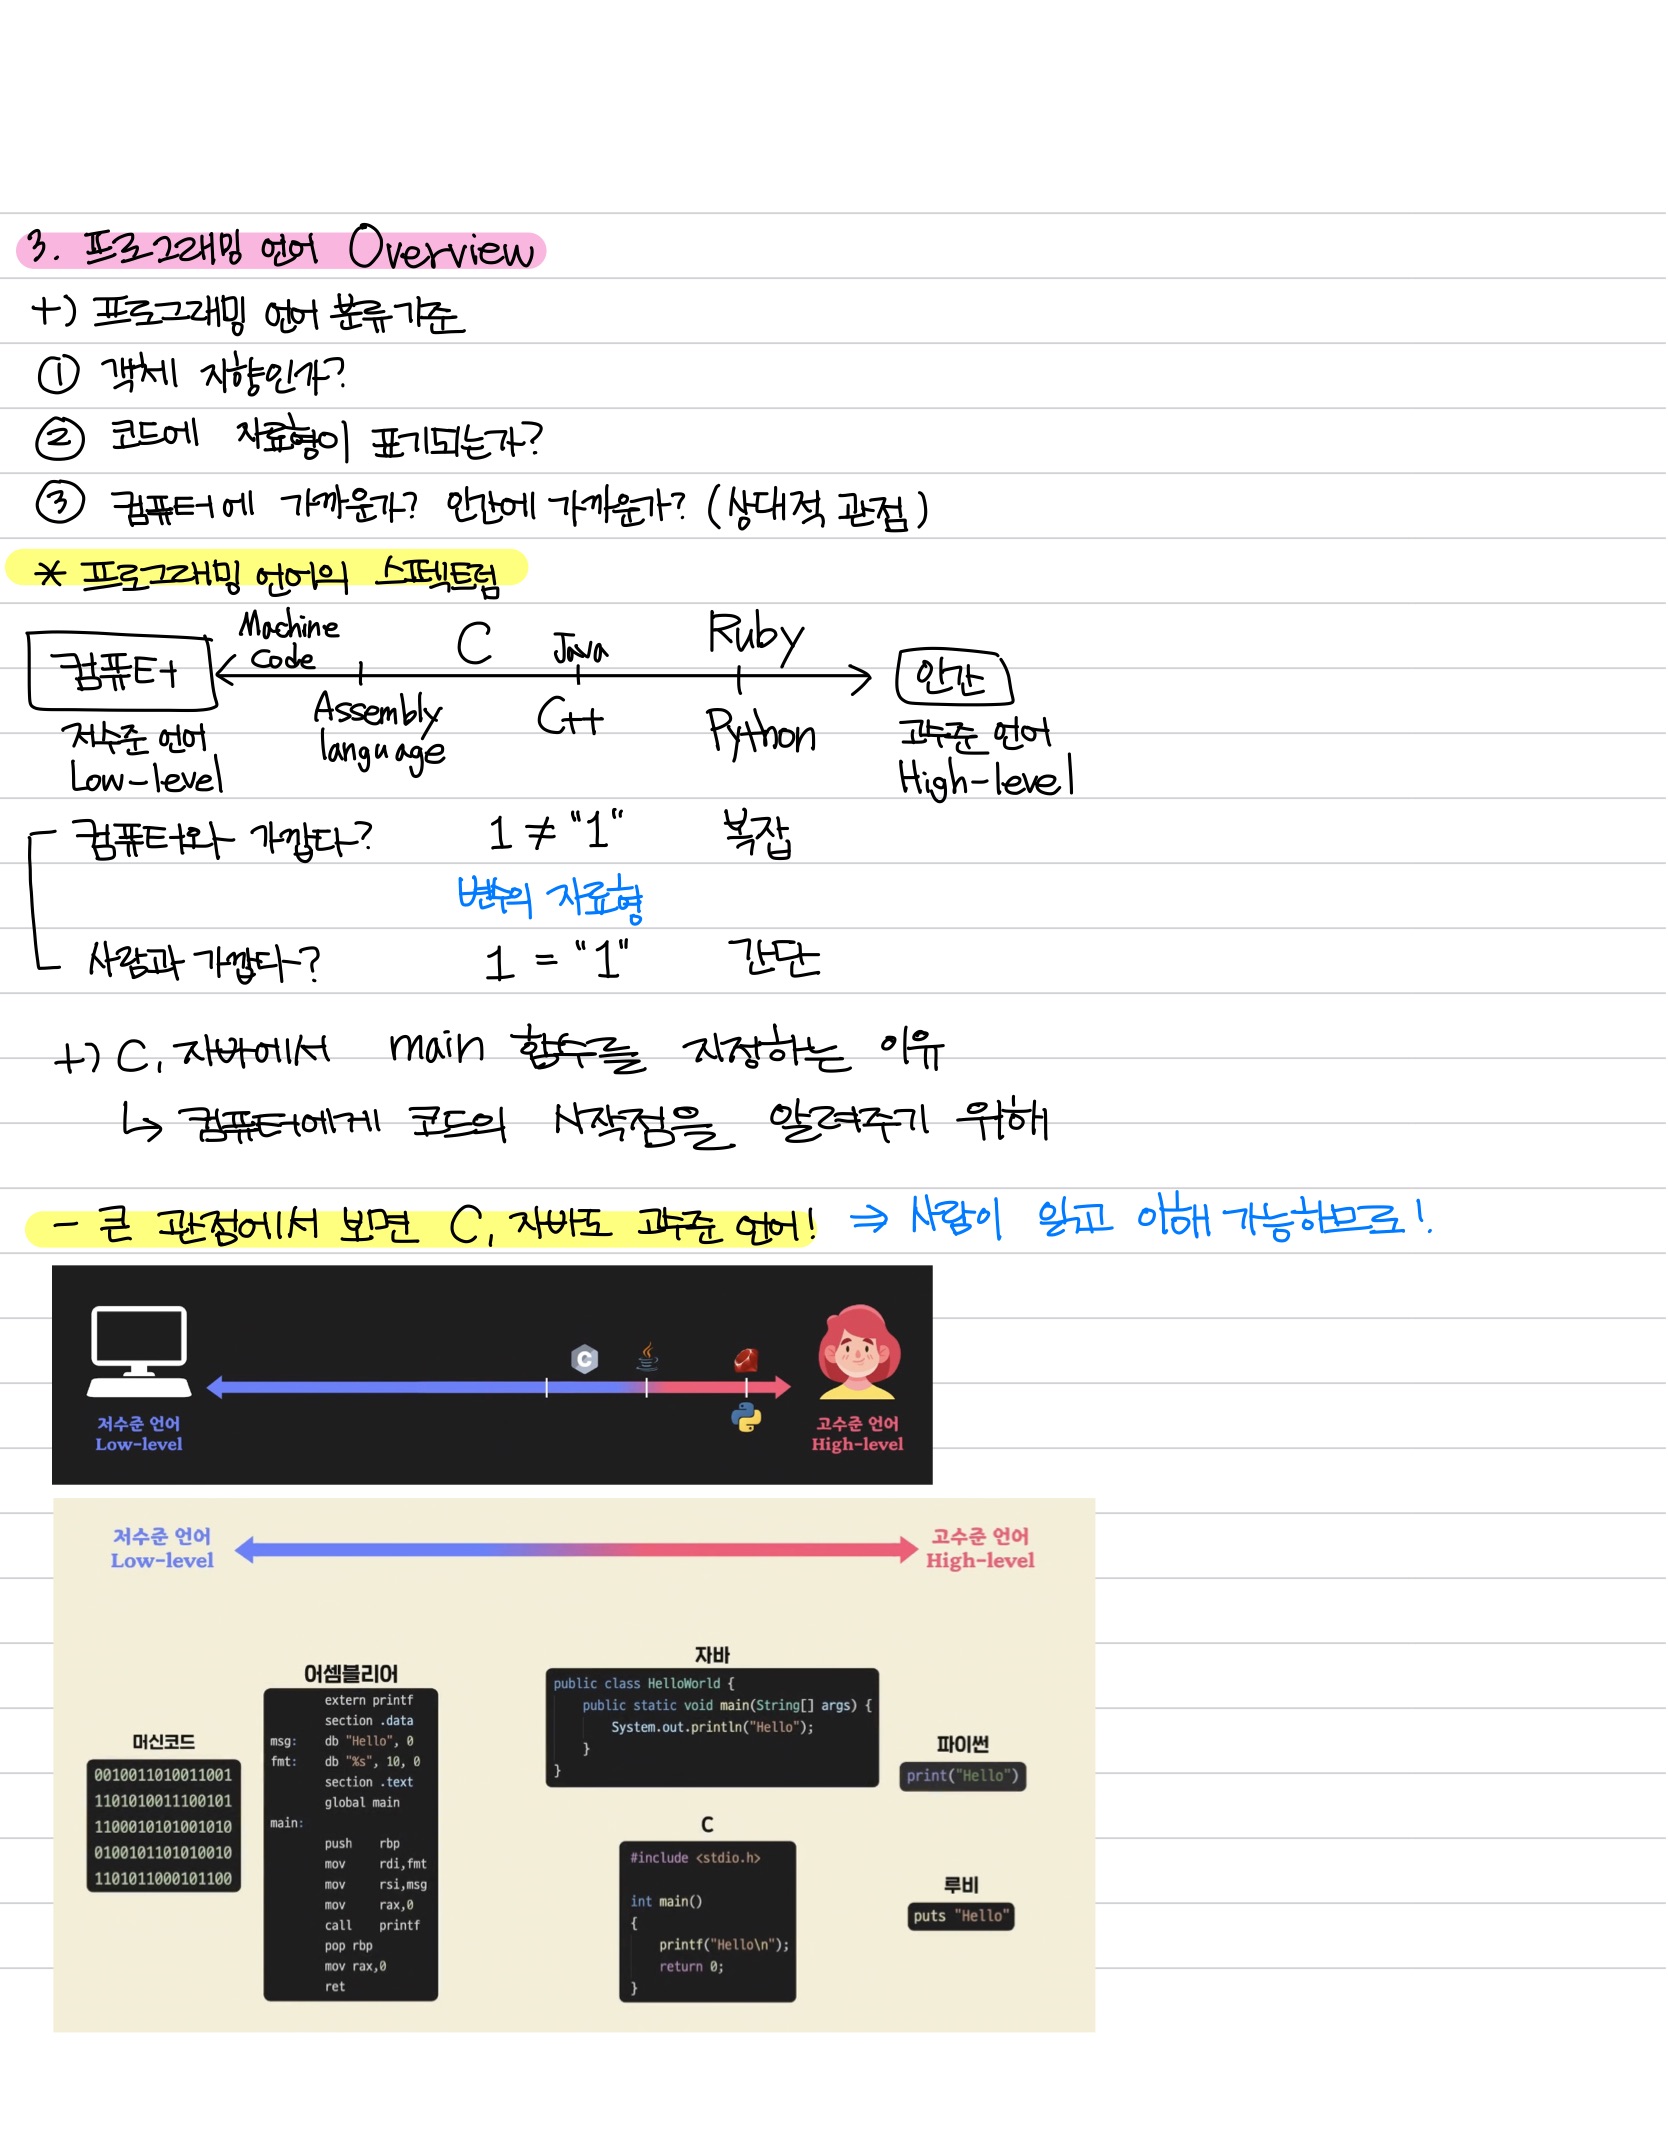 3. 프로그래밍 언어 Overview
+) 프로그래밍 언어 분류기준
① 객체 지향인가?
② 코드에 자료형이 표기되는가?
③ 컴퓨터에 가까운가? 인간에 가까운가? (상대적 관점)
* 프로그래밍 언어의 스펙트럼
컴퓨터
Machine
Code
C
Java
Ruby
인간
Assembly
language
C++
Python
저수준 언어
Low-level
고수준 언어
High-level
컴퓨터와 가깝다? 1 ≠ "1" 복잡
변수의 자료형
사람과 가깝다? 1 = "1" 간단
+) C, 자바에서 main 함수를 지정하는 이유
↳ 컴퓨터에게 코드의 시작점을 알려주기 위해
- 큰 관점에서 보면 C, 자바도 고수준 언어! ⇒ 사람이 읽고 이해 가능하므로!
C
저수준 언어
Low-level
고수준 언어
High-level
저수준 언어
Low-level
고수준 언어
High-level
머신코드
0010011010011001
1101010011100101
1100010101001010
0100101101010010
1101011000101100
어셈블리어
extern printf
section .data
msg: db "Hello", 0
fmt: db "%s", 10, 0
section .text
global main
main:
push rbp
mov rdi,fmt
mov rsi,msg
mov rax,0
call printf
pop rbp
mov rax,0
ret
자바
public class HelloWorld {
public static void main(String[] args) {
System.out.println("Hello");
}
}
C
#include <stdio.h>
int main()
{
printf("Hello\n");
return 0;
}
파이썬
print("Hello")
루비
puts "Hello"